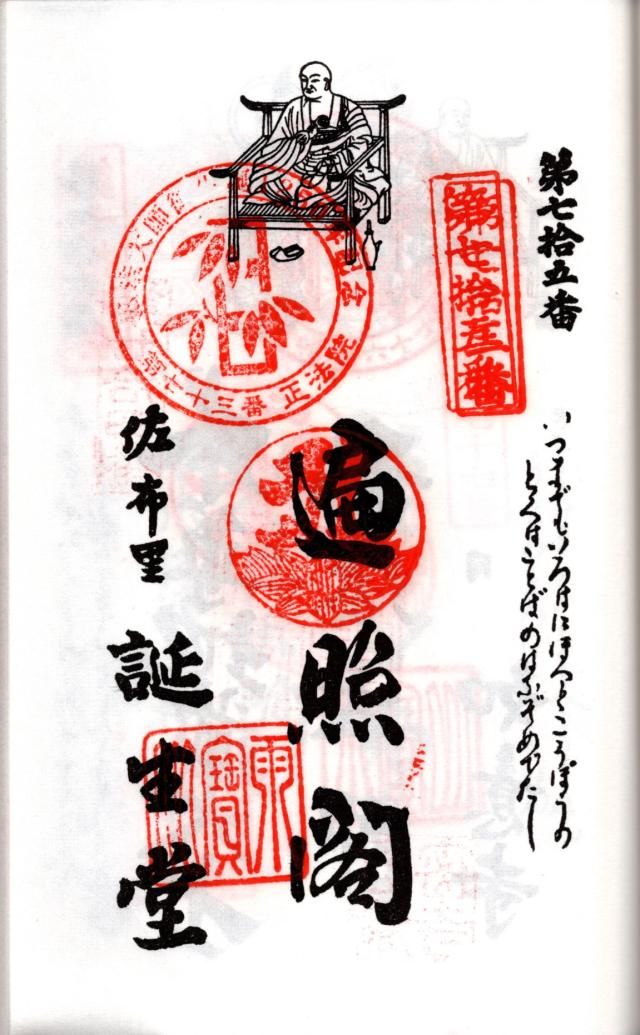 第七拾五番
第七拾五番
いつまでもいろはにほへとこうぼうの
とくはことばのはなぞめでたし
遍照閣
佐布里
誕生堂
雨寶山
三十七番 正法院